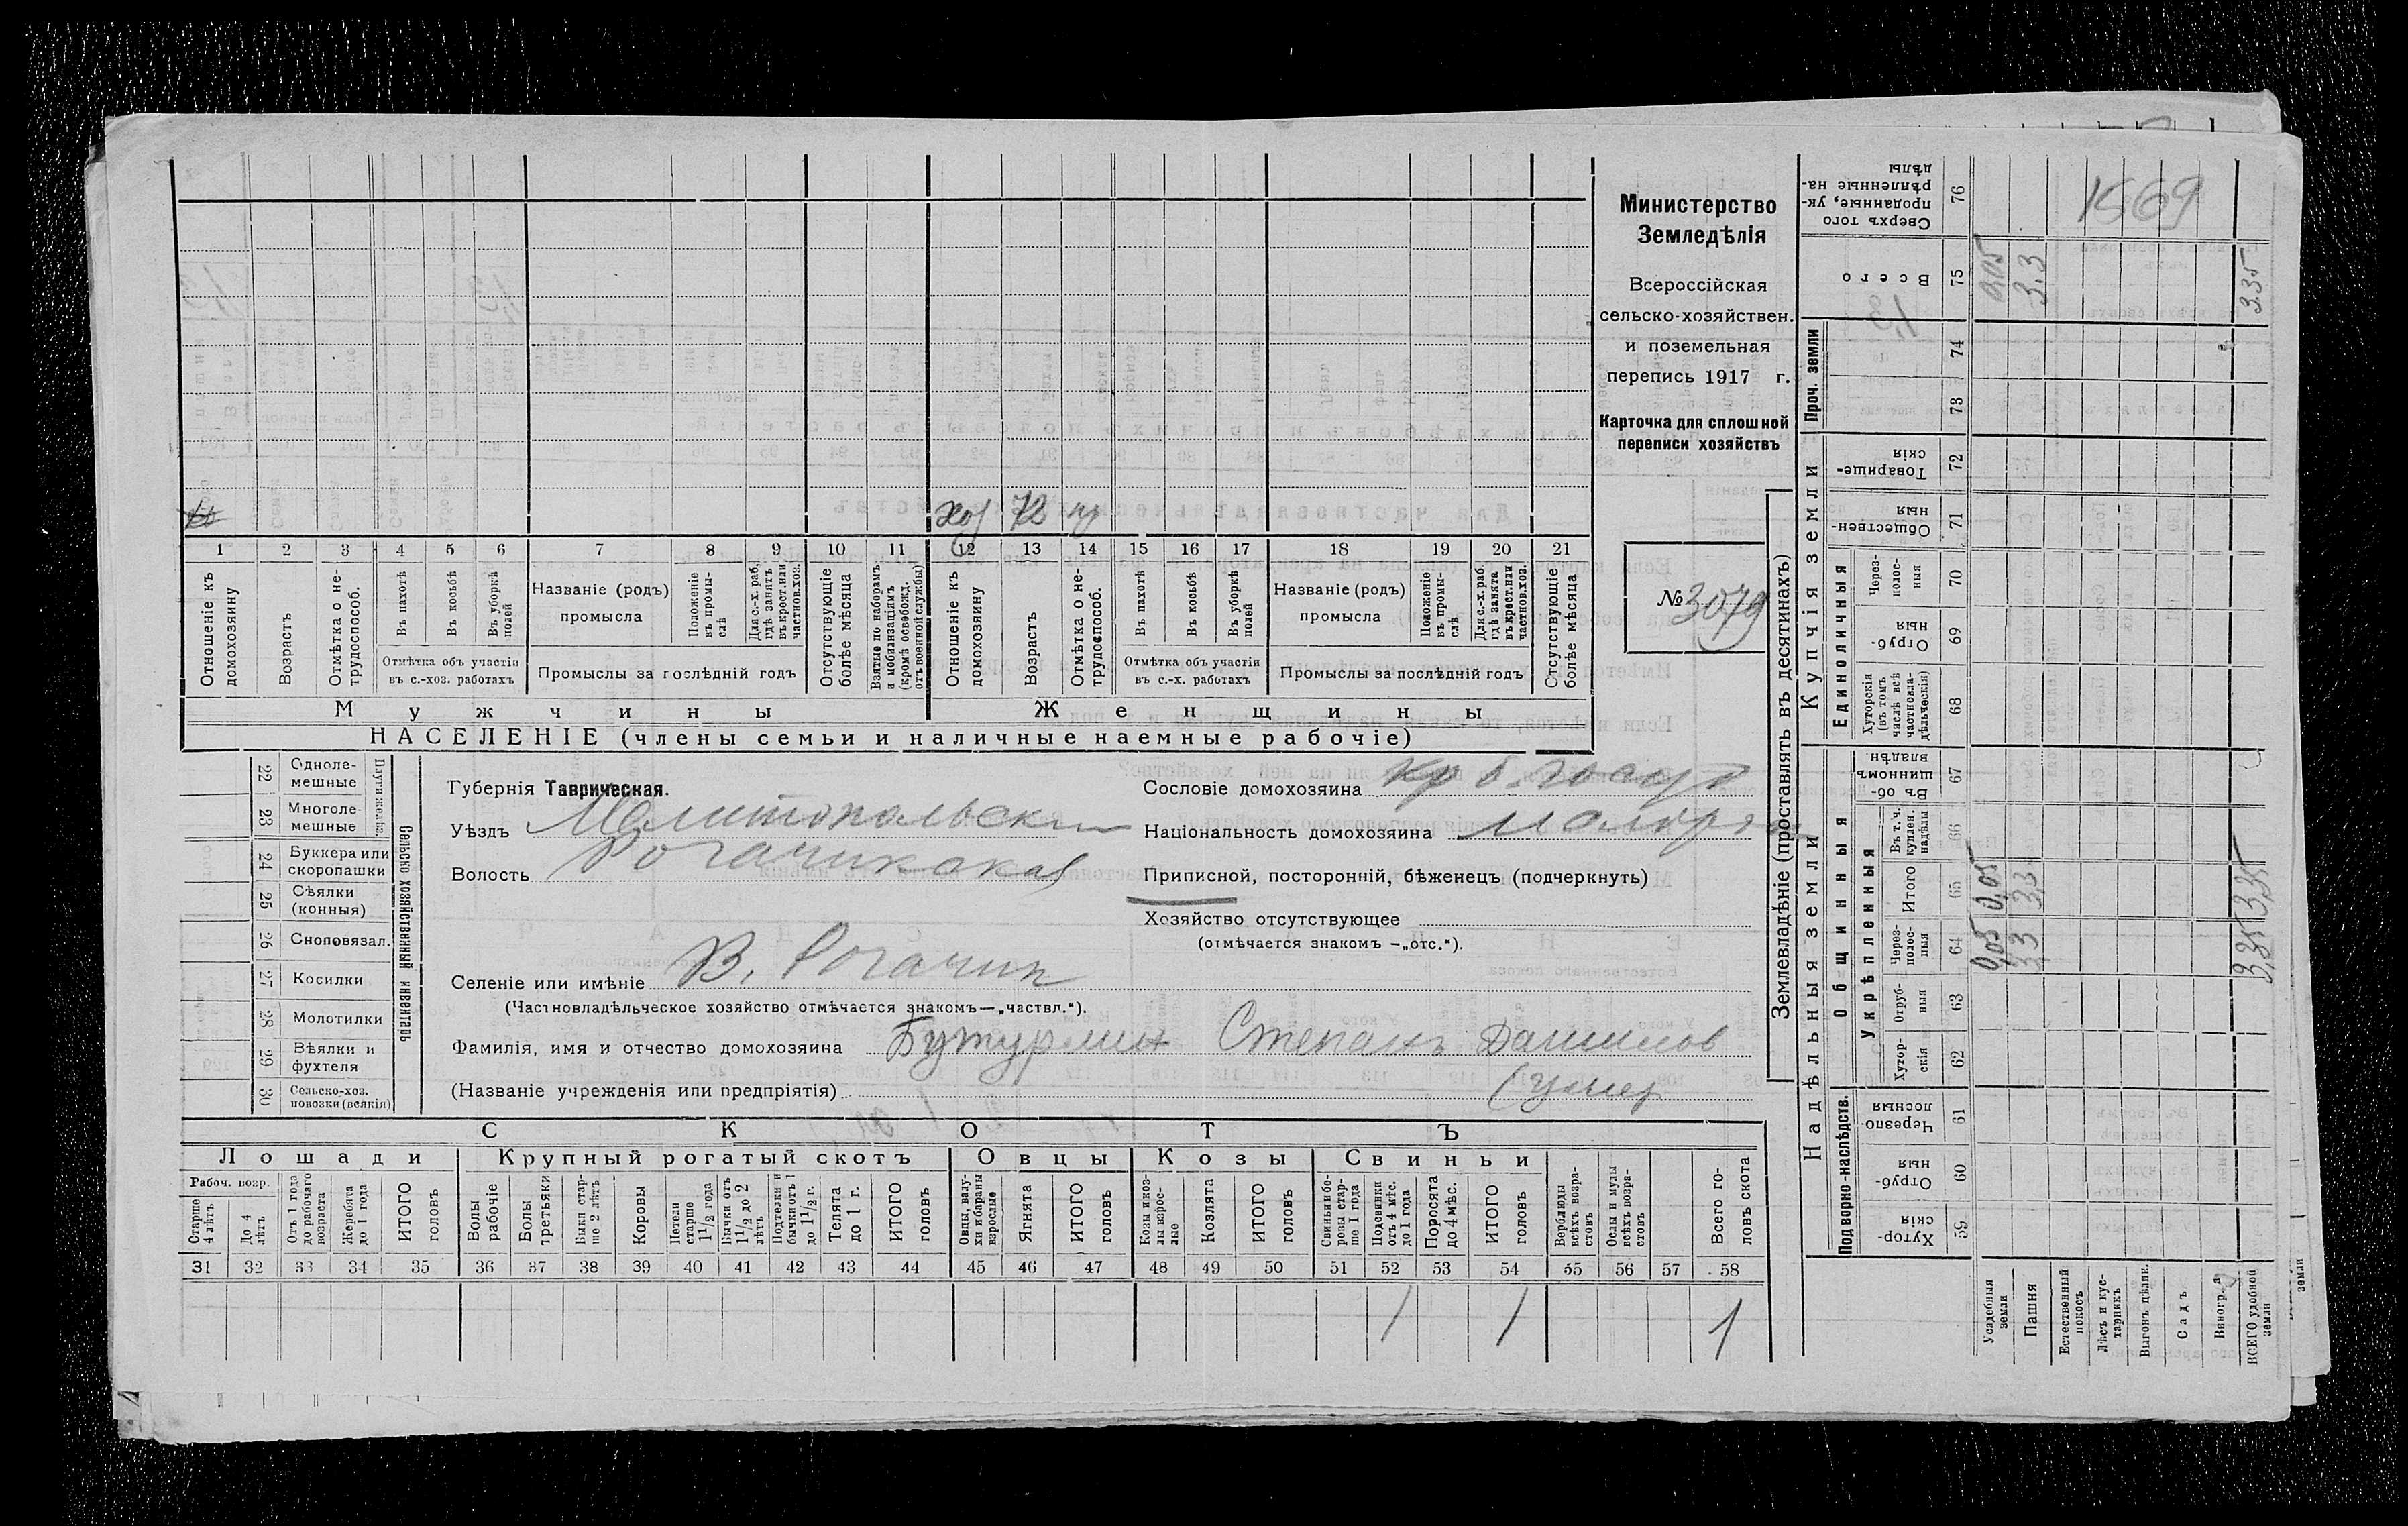 Министерство
Земледѣлія
Всероссійская
сельско-хозяйствен.
и поземельная
перепись 1917 г.
Карточка для сплошной
переписи хозяйствъ
№ 3079
хоз 72
1 2 3 4 5 6 7 8 9 10 11 12 13 14 15 16 17 18 19 20 21
Отношеніе къ домохозяину
Возрастъ
Отмѣтка о не-трудоспособ.
Въ пахотѣ
Въ косьбѣ
Въ уборкѣ полей
Отмѣтка объ участіи
въ с.-хоз. работахъ
Названіе (родъ)
промысла
Положеніе въ промы-слѣ
Для с.-х. раб. гдѣ занятъ въ крест. или частнов. хоз.
Промыслы за послѣдній годъ
Отсутствующіе болѣе мѣсяца
Взятые по наборамъ и мобилизаціямъ (кромѣ освобожд. отъ военной службы)
Отношеніе къ домохозяину
Возрастъ
Отмѣтка о не-трудоспособ.
Въ пахотѣ
Въ косьбѣ
Въ уборкѣ полей
Отмѣтка объ участіи
въ с.-х. работахъ
Названіе (родъ)
промысла
Положеніе въ промы-слѣ
Для с.-х. раб. гдѣ занята въ крест. или частнов. хоз.
Промыслы за послѣдній годъ
Отсутствующіе болѣе мѣсяца
Мужчины Женщины
НАСЕЛЕНІЕ (члены семьи и наличные наемные рабочіе)
Сельско хозяйственный инвентарь
22 Одноле-мешные
23 Многоле-мешные
24 Буккера или скоропашки
25 Сѣялки (конныя)
26 Сноповязал.
27 Косилки
28 Молотилки
29 Вѣялки и фухтеля
30 Сельско-хоз. повозки (всякія)
Губернія Таврическая.
Уѣздъ Мелитопольскій
Волость Рогачикская
Селеніе или имѣніе В. Рогачик
(Частновладѣльческое хозяйство отмѣчается знакомъ—„частвл.“).
Фамилія, имя и отчество домохозяина Бутурлин Степанъ Данилов
(Названіе учрежденія или предпріятія) (умер
Сословіе домохозяина
Національность домохозяина малор
Приписной, посторонній, бѣженецъ (подчеркнуть)
Хозяйство отсутствующее
(отмѣчается знакомъ —„отс.“).
СКОТЪ
Лошади Крупный рогатый скотъ Овцы Козы Свиньи
Рабоч. возр.
Старше 4 лѣтъ
До 4 лѣтъ
Отъ 1 года до рабочаго возраста
Жеребята до 1 года
ИТОГО головъ
Волы рабочіе
Волы третьяки
Быки стар-ше 2 лѣтъ
Коровы
Нетели старше 1½ года
Бычки отъ 1½ до 2 лѣтъ
Подтелки и бычки отъ 1 до 1½ г.
Телята до 1 г.
ИТОГО головъ
Овцы, валу-хи и бараны взрослые
Ягнята
ИТОГО головъ
Козы и коз-лы взрос-лые
Козлята
ИТОГО головъ
Свиньи и бо-ровы стар-ше 1 года
Подсвинки отъ 4 мѣс. до 1 года
Поросята до 4 мѣс.
ИТОГО головъ
Верблюды всѣхъ возра-стовъ
Ослы и мулы всѣхъ возра-стовъ
Всего го-ловъ скота
31 32 33 34 35 36 37 38 39 40 41 42 43 44 45 46 47 48 49 50 51 52 53 54 55 56 57 58
1 1 1
Землевладѣніе (проставлять въ десятинахъ)
Надѣльныя земли
Подворно-наслѣдств.
59 Хутор-скія
60 Отруб-ныя
61 Черезпо-лосныя
Общинныя
Укрѣпленныя
62 Хутор-скія
63 Отруб-ныя
64 Через-полос-ныя
65 Итого
66 Въ т. ч. куплен. надѣлы
67 Въ об-щинномъ владѣн.
Купчія земли
Единоличныя
68 Хуторскія (въ томъ числѣ всѣ частновла-дѣльческія)
69 Отруб-ныя
70 Через-полос-ныя
71 Обществен-ныя
72 Товарище-скія
Проч. земли
73
74
75 Всего
76 Сверхъ того проданные, ук-рѣпленные на-дѣлы
Усадебныя земли 0,05 0,05 0,05
Пашня 3,3 3,3 3.3
Естественный покосъ
Лѣсъ и кус-тарникъ
Выгонъ дѣлим.
Садъ
Виногр.
ВСЕГО удобной земли 3,35 3,35 335
1569
земли